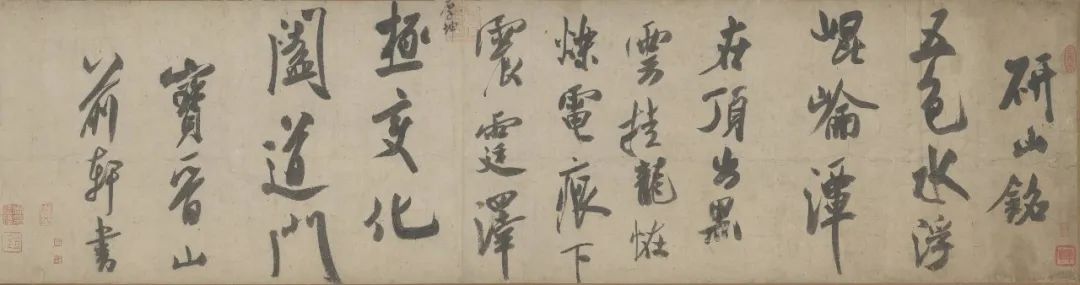 研山銘
五色水浮
崐崘潭
在頂出黑
雲挂龍怪
爍電痕下
震霆澤
厚坤
極变化
闔道門
寶晉山
前軒書